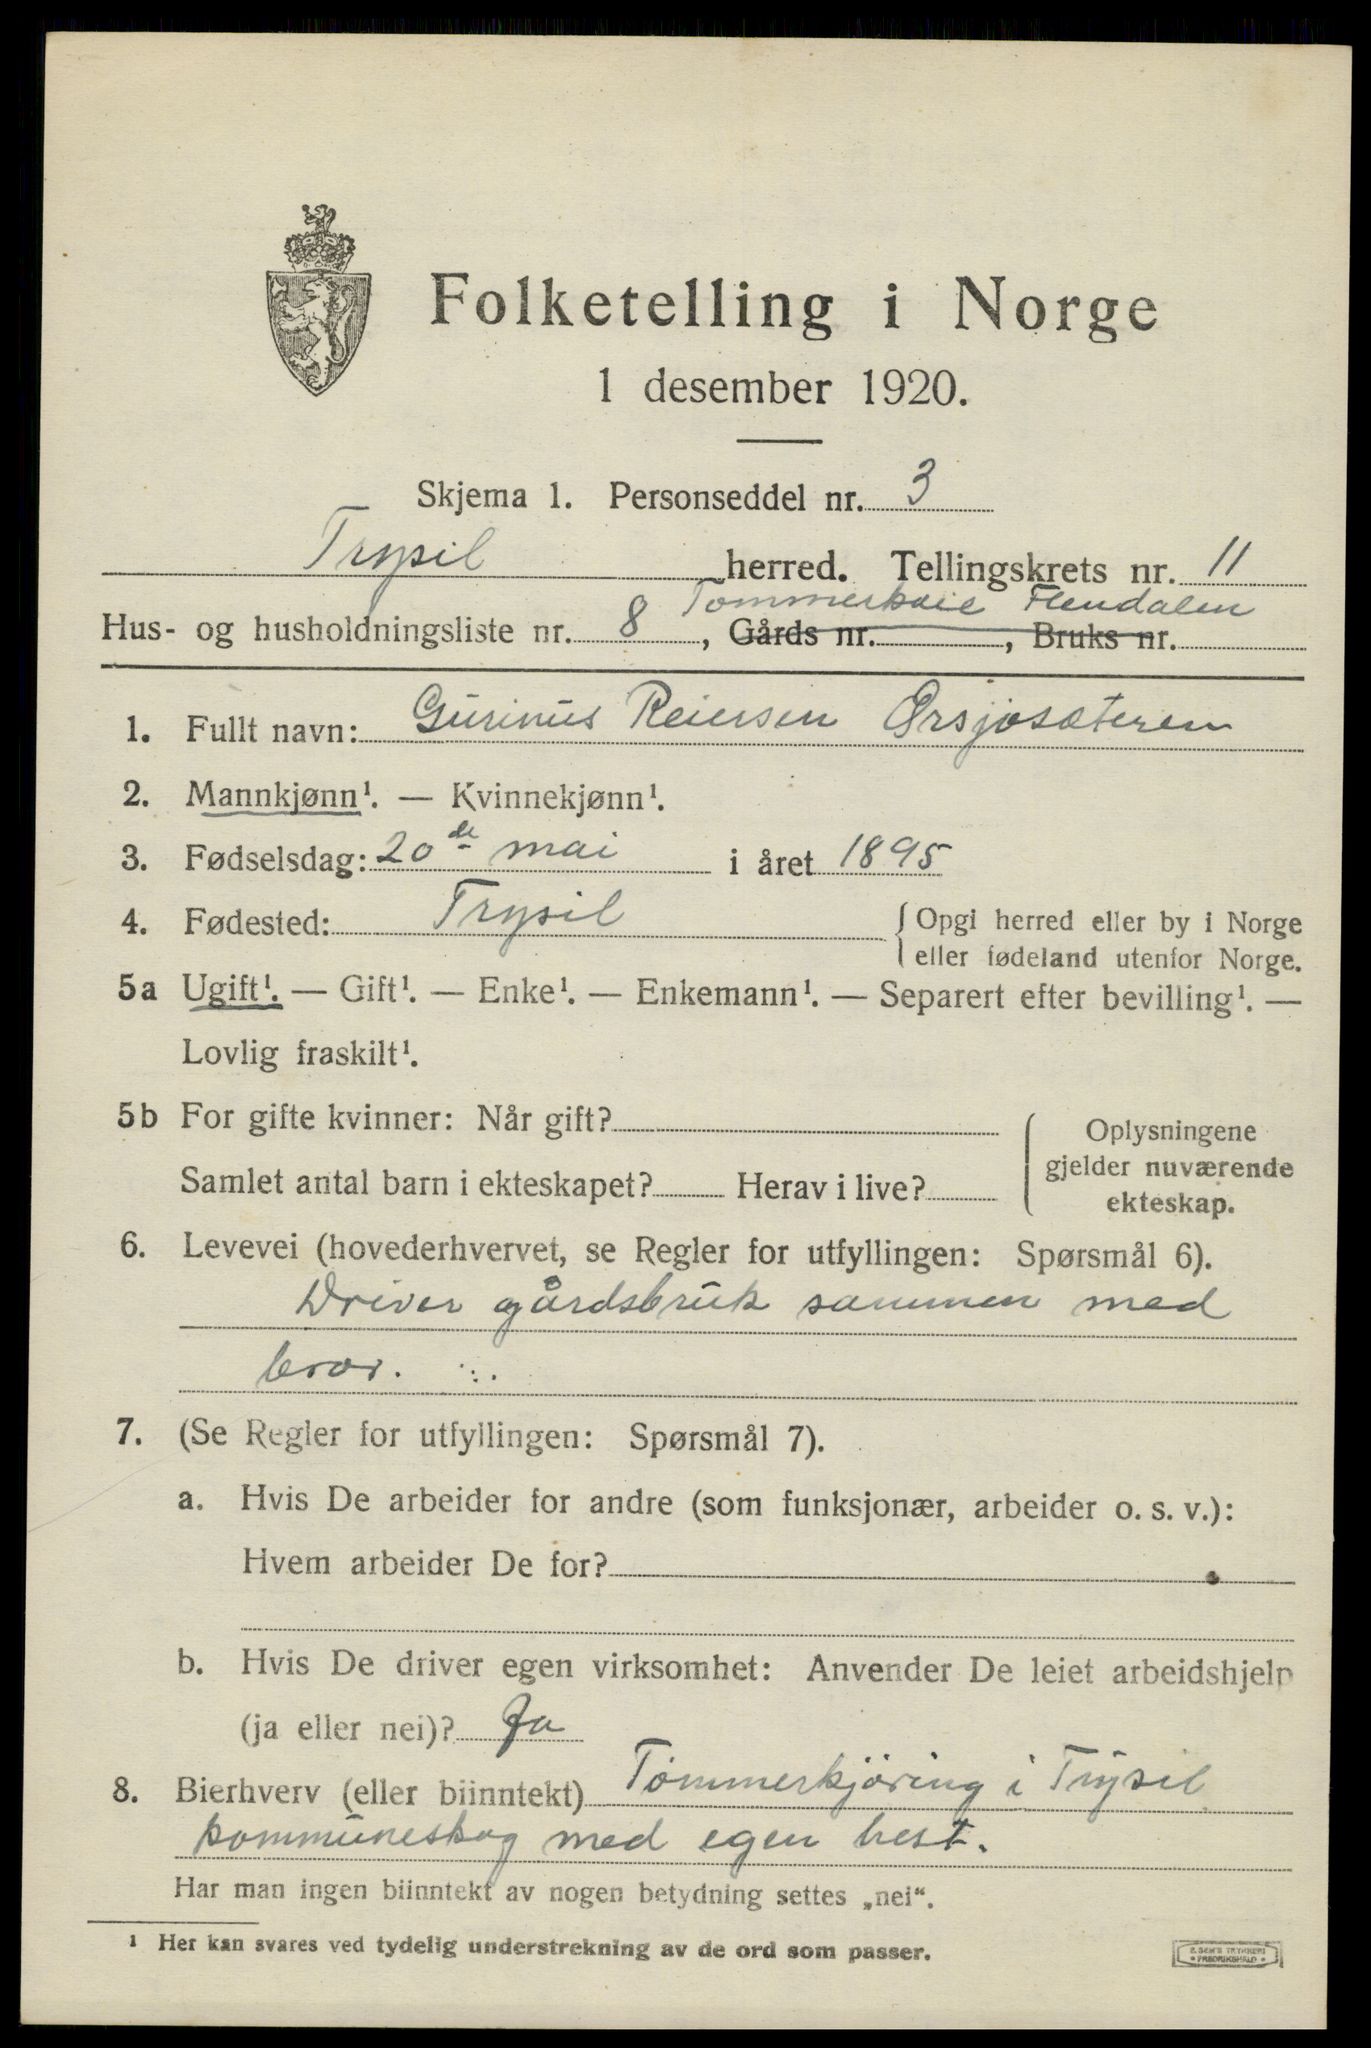 Folketelling i Norge
1 desember 1920.
Skjema 1. Personseddel nr. 3
Trysil herred. Tellingskrets nr. 11
Tømmerkoie Flendalen
Hus- og husholdningsliste nr. 8, Gårds nr. , Bruks nr.
1. Fullt navn: Gurinus Reiersen Ørsjøsæteren
2. Mannkjønn¹. — Kvinnekjønn¹.
3. Fødselsdag: 20de mai i året 1895
4. Fødested: Trysil { Opgi herred eller by i Norge
eller fødeland utenfor Norge.
5a Ugift¹. — Gift¹. — Enke¹. — Enkemann¹. — Separert efter bevilling¹. —
Lovlig fraskilt¹.
5b For gifte kvinner: Når gift?
Samlet antal barn i ekteskapet? Herav i live?
Oplysningene
gjelder nuværende
ekteskap.
6. Levevei (hovederhvervet, se Regler for utfyllingen: Spørsmål 6).
Driver gårdsbruk sammen med
bror.
7. (Se Regler for utfyllingen: Spørsmål 7).
a. Hvis De arbeider for andre (som funksjonær, arbeider o. s. v.):
Hvem arbeider De for?
b. Hvis De driver egen virksomhet: Anvender De leiet arbeidshjelp
(ja eller nei)? Ja
8. Bierhverv (eller biinntekt) Tømmerkjøring i Trysil
kommuneskog med egen hest.
Har man ingen biinntekt av nogen betydning settes „nei“.
¹ Her kan svares ved tydelig understrekning av de ord som passer.